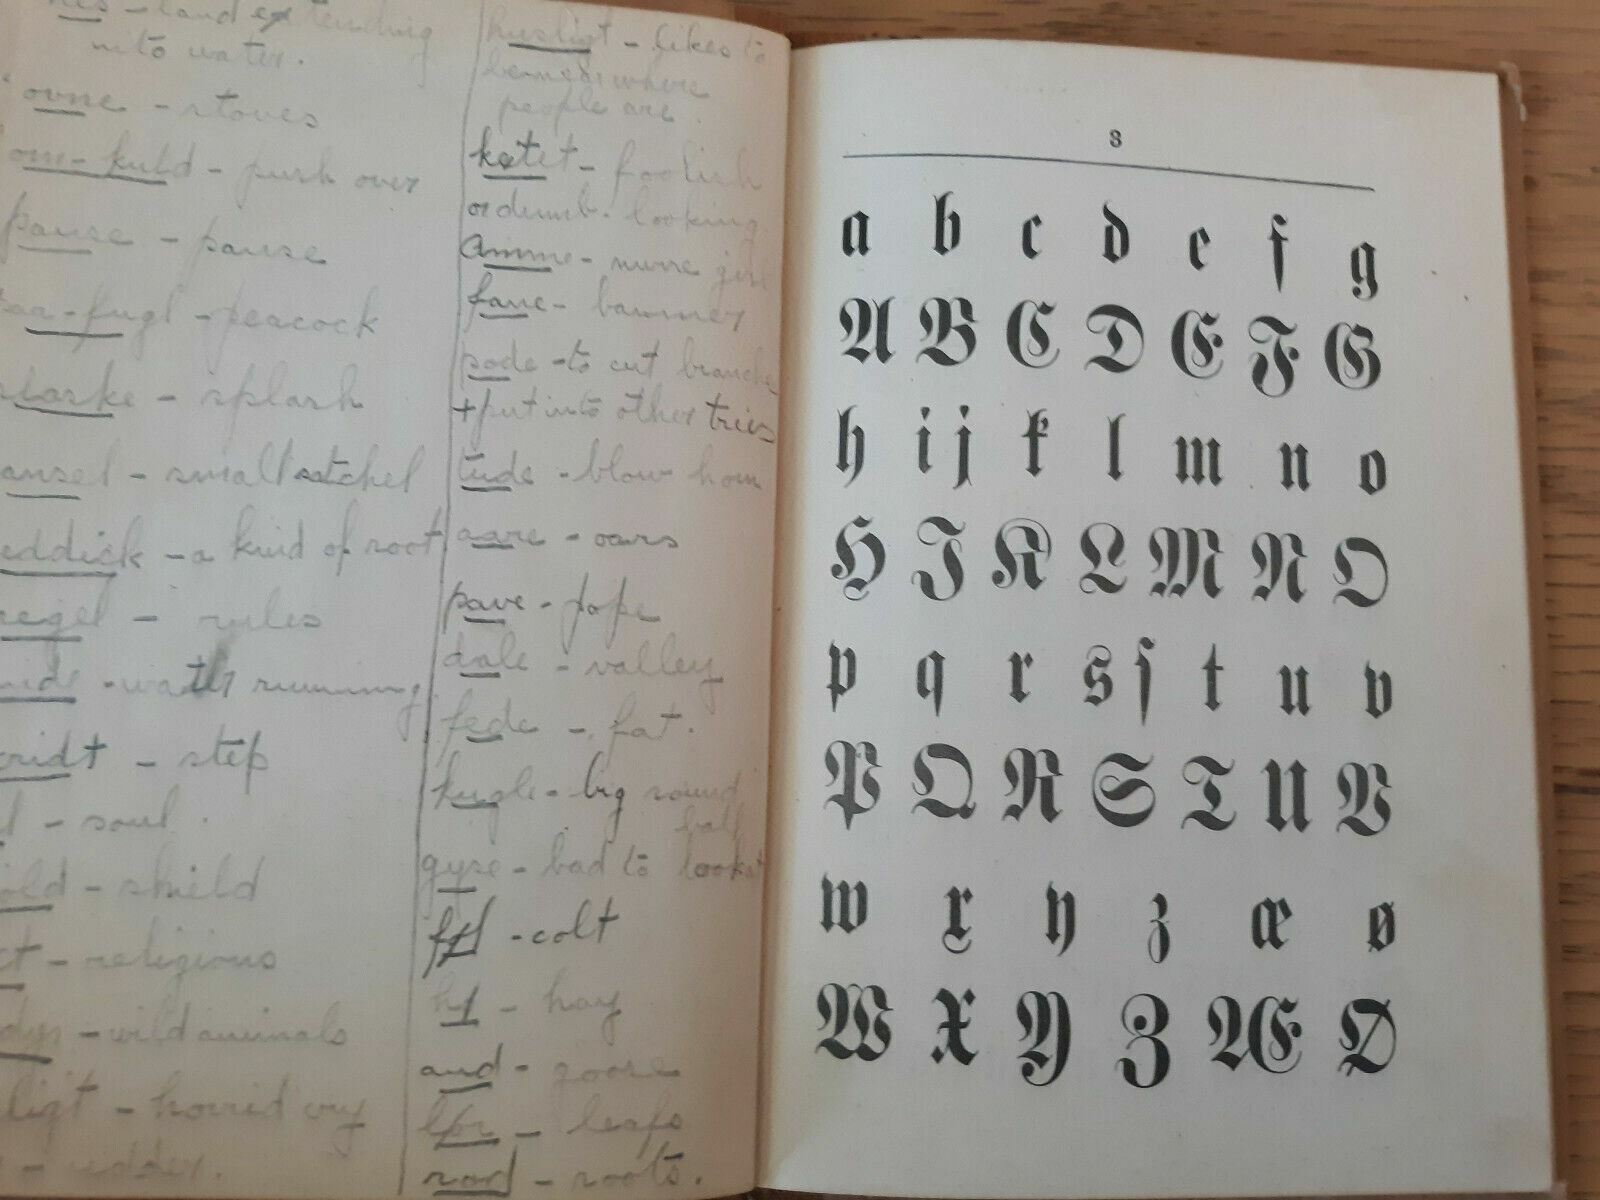 nes - land extending
into water.
ovne - stoves
om-kuld - push over
pause - pause
aa-fugl - peacock
laske - splash
ansel - small satchel
eddick - a kind of root
regel - rules
- water running
ridt - step
l - soul.
old - shield
ct - religious
dyr - wild animals
ligt - horrid cry
husligt - likes to
be where
people are.
kstet - foolish
or dumb-looking
Amme - nurse girl
fane - banner
pode - to cut branches
+ put into other tries
tude - blow horn
aare - oars
pave - pope
dale - valley
fede - fat.
kugle - big round
ball
gyse - bad to look at
føl - colt
hø - hay
and - goose
løv - leafs
rod - roots.
3
a b c d e f g
A B C D E F G
h i j k l m n o
H I K L M N O
p q r s ſ t u v
P Q R S T U V
w x y z æ ø
W X Y Z Æ Ø